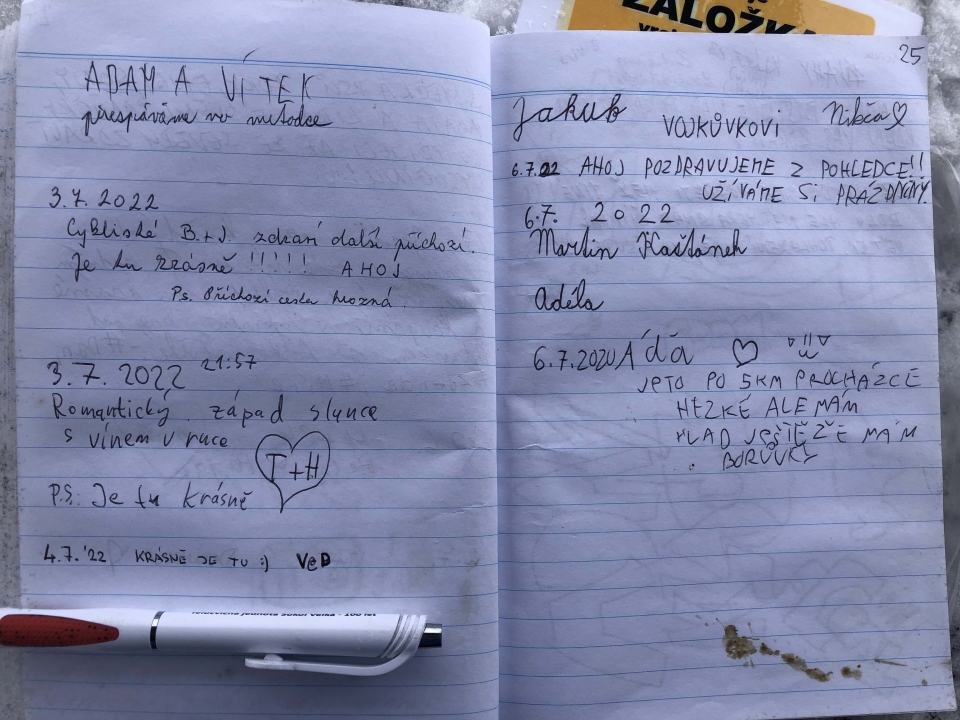 ADAM A VÍTEK
přespáváme na metodce
3.7.2022
Cyklisté B.+J. zdraví další příchozí.
Je tu krásně !!!!! AHOJ
Ps. Příchozí cesta hrozná.
3.7.2022 21:57
Romantický západ slunce
s vínem v ruce
T+H
P.S. Je tu krásně
4.7.'22 KRÁSNĚ JE TU :) VeD
ZÁLOŽKA
25
Jakub VOJKŮVKOVI Nikča
6.7.22 AHOJ POZDRAVUJEME Z POHLEDCE!!
UŽÍVÁME SI PRÁZDNINY.
6.7. 2022
Martin Kaštánek
Adéla
6.7.2020 Áďa
JETO PO 5KM PROCHÁZCE
HEZKÉ ALE MÁM
HLAD JEŠTĚ ŽE MÁM
BORŮVKY
Tělocvičná jednota Sokol Velká - 100 let